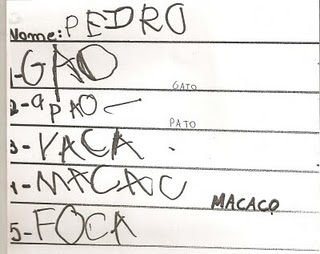 Nome: PEDRO
1-GAO
GATO
2-APAO
PATO
3-VACA.
4-MACAO
MACACO
5-FOCA